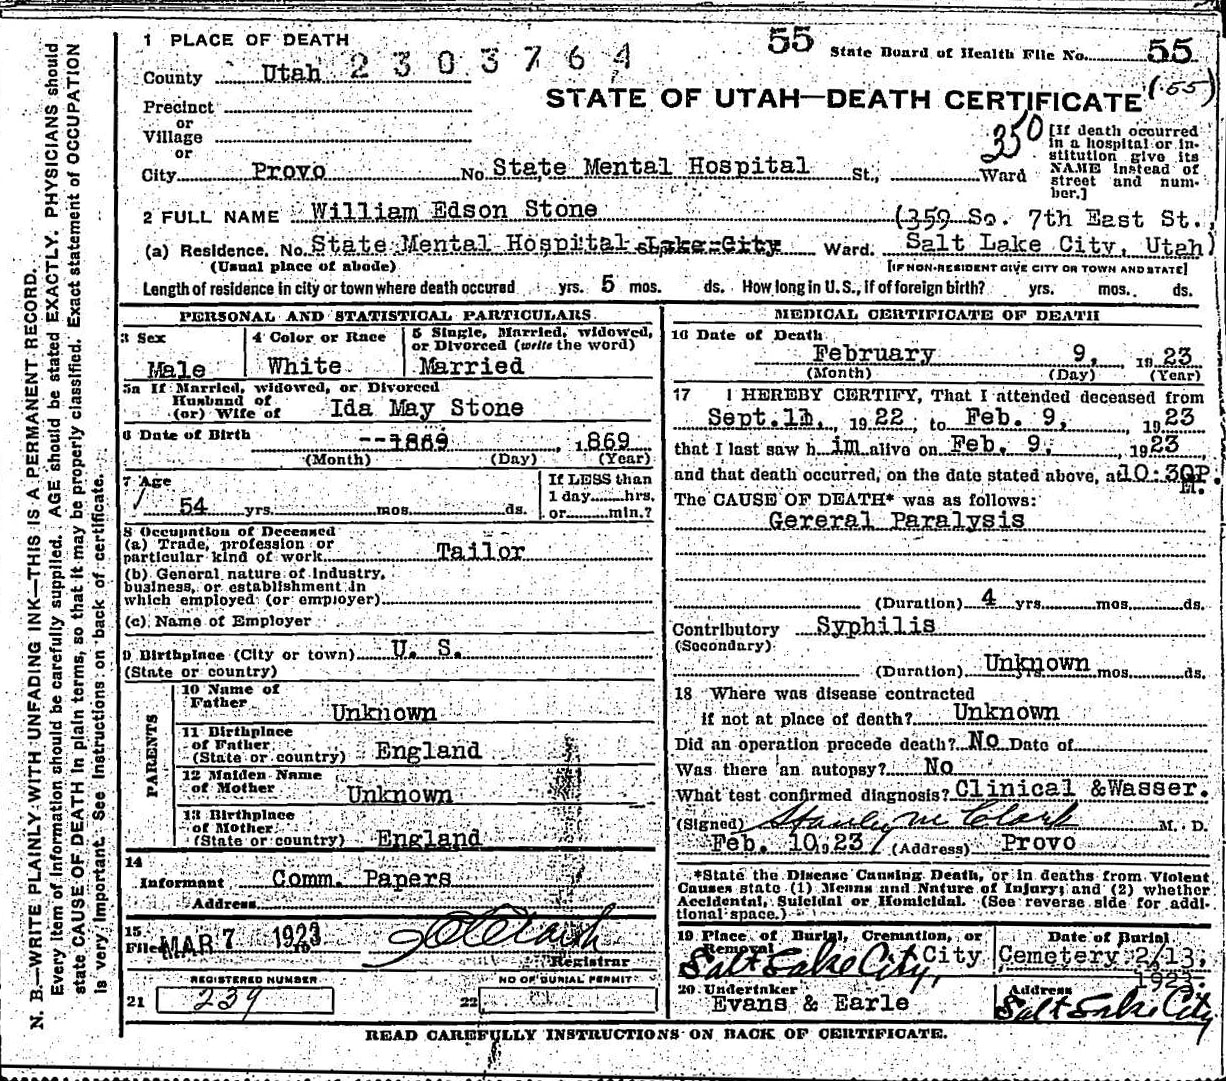 1 PLACE OF DEATH 55 State Board of Health File No. 55
County Utah 2303764 (55)
Precinct
STATE OF UTAH—DEATH CERTIFICATE
or
Village
or
350 [If death occurred in a hospital or institution give its NAME instead of street and number.]
City Provo No. State Mental Hospital St., Ward
2 FULL NAME William Edson Stone (359 So. 7th East St.
(a) Residence. No. State Mental Hospital Lake City Ward. Salt Lake City, Utah)
(Usual place of abode) [IF NON-RESIDENT GIVE CITY OR TOWN AND STATE]
Length of residence in city or town where death occured yrs. 5 mos. ds. How long in U. S., if of foreign birth? yrs. mos. ds.
PERSONAL AND STATISTICAL PARTICULARS
3 Sex 4 Color or Race 5 Single, Married, widowed, or Divorced (write the word)
Male White Married
5a If Married, widowed, or Divorced
Husband of
(or) Wife of Ida May Stone
6 Date of Birth --1869 , 1869
(Month) (Day) (Year)
7 Age If LESS than
54 yrs. mos. ds. 1 day hrs.
or min.?
8 Occupation of Deceased
(a) Trade, profession or
particular kind of work Tailor
(b) General nature of Industry,
business, or establishment in
which employed (or employer)
(c) Name of Employer
9 Birthplace (City or town) U. S.
(State or country)
PARENTS
10 Name of
Father Unknown
11 Birthplace
of Father
(State or country) England
12 Maiden Name
of Mother Unknown
13 Birthplace
of Mother
(State or country) England
14
Informant Comm. Papers
Address
15
Filed MAR 7 1923 19
Registrar
REGISTERED NUMBER NO OF BURIAL PERMIT
21 239 22
MEDICAL CERTIFICATE OF DEATH
16 Date of Death
February 9, 1923
(Month) (Day) (Year)
17 I HEREBY CERTIFY, That I attended deceased from
Sept. 11, 1922, to Feb. 9, 1923
that I last saw h im alive on Feb. 9, 1923
and that death occurred, on the date stated above, at 10:30P. M.
The CAUSE OF DEATH* was as follows:
Gereral Paralysis
(Duration) 4 yrs. mos. ds.
Contributory Syphilis
(Secondary)
(Duration) Unknown yrs. mos. ds.
18 Where was disease contracted
if not at place of death? Unknown
Did an operation precede death? No Date of
Was there an autopsy? No
What test confirmed diagnosis? Clinical & Wasser.
(Signed) Stanley M Clark M. D.
Feb. 10 1923 (Address) Provo
*State the Disease Causing Death, or in deaths from Violent
Causes state (1) Means and Nature of Injury; and (2) whether
Accidental, Suicidal or Homicidal. (See reverse side for addi-
tional space.)
19 Place of Burial, Cremation, or Date of Burial
Removal
Salt Lake City, City Cemetery 2/13,
1923
20 Undertaker Address
Evans & Earle Salt Lake City
READ CAREFULLY INSTRUCTIONS ON BACK OF CERTIFICATE.
N. B.—WRITE PLAINLY WITH UNFADING INK—THIS IS A PERMANENT RECORD.
Every item of information should be carefully supplied. AGE should be stated EXACTLY. PHYSICIANS should
state CAUSE OF DEATH in plain terms, so that it may be properly classified. Exact statement of OCCUPATION
is very important. See Instructions on back of certificate.